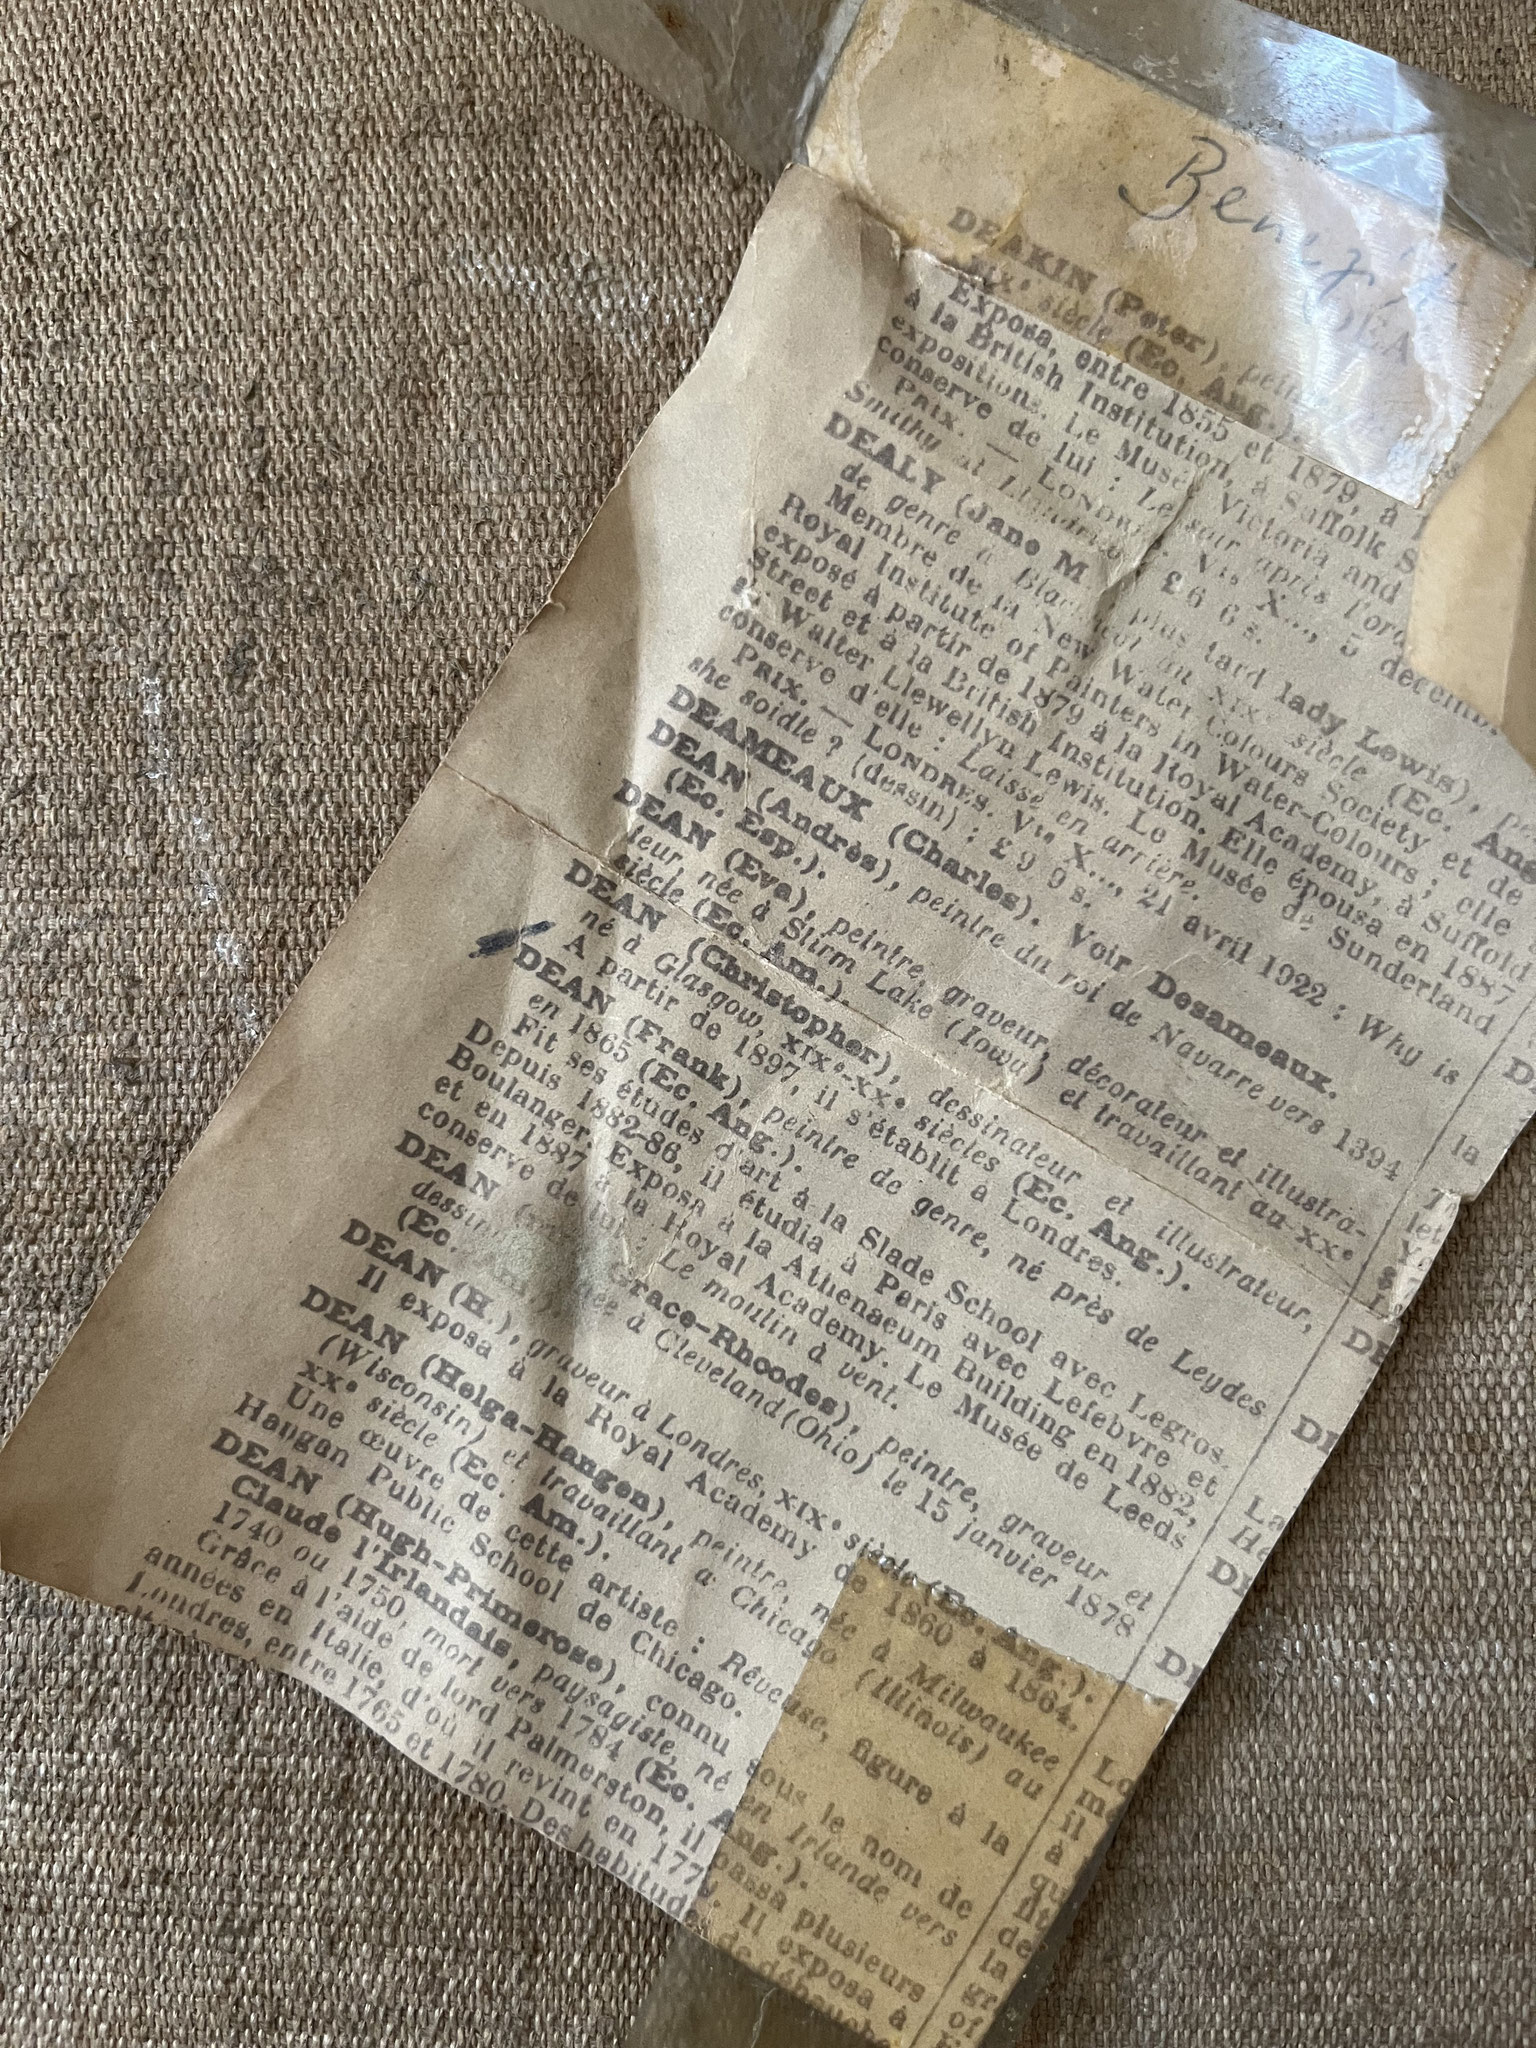 Benezit
DEAKIN (Peter),
XIXᵉ siècle (Ec. Ang.).
Exposa, entre 1855 et 1879, à
à la British Institution, à Suffolk S
expositions. Le Musée Victoria and
conserve de lui : Le soir après l'orage
PRIX. — LONDRES. Vte X..., 5 décemb
Smithy at : £6 6 s.
DEALY (Jane M plus tard lady Lewis), pe
de genre à Blackheath au XIXᵉ siècle (Ec. Ang
Membre de la New Water Colours Society et de
Royal Institute of Painters in Water-Colours ; elle
exposé à partir de 1879 à la Royal Academy, à Suffolk
Street et à la British Institution. Elle épousa en 1887
Walter Llewellyn Lewis. Le Musée de Sunderland
conserve d'elle : Laissé en arrière.
PRIX. — LONDRES. Vte X..., 21 avril 1922 : Why is
she soidle ? (dessin) : £9 9 s.
DEAMEAUX (Charles). Voir Desameaux.
DEAN (Andrès), peintre du roi de Navarre vers 1394
(Ec. Esp.).
DEAN (Eva), peintre, graveur, décorateur et illustra-
teur, née à Stirm Lake (Iowa) et travaillant au XXᵉ
siècle (Ec. Am.).
DEAN (Christopher), dessinateur et illustrateur,
né à Glasgow, XIXᵉ-XXᵉ siècles (Ec. Ang.).
A partir de 1897, il s'établit à Londres.
DEAN (Frank), peintre de genre, né près de Leydes
en 1865 (Ec. Ang.).
Fit ses études d'art à la Slade School avec Legros.
Depuis 1882-86, il étudia à Paris avec Lefebvre et
Boulanger. Exposa à la Athenaeum Building en 1882,
et en 1887 à la Royal Academy. Le Musée de Leeds
conserve de lui : Le moulin à vent.
DEAN Grace-Rhodes), peintre, graveur et
née à Cleveland (Ohio) le 15 janvier 1878
(Ec.
DEAN (H.), graveur à Londres, XIXᵉ siècle (Ec. Ang.).
Il exposa à la Royal Academy de 1860 à 1864.
DEAN (Helga-Hangen), peintre, née à Milwaukee
(Wisconsin) et travaillant à Chicago (Illinois) au
XXᵉ siècle (Ec. Am.).
Une œuvre de cette artiste : Rêveuse, figure à la
Haugan Public School de Chicago.
DEAN (Hugh-Primerose), connu sous le nom de
Claude l'Irlandais, paysagiste, né en Irlande vers
1740 ou 1750, mort vers 1784 (Ec. Ang.).
Grâce à l'aide de lord Palmerston, il passa plusieurs
années en Italie, d'où il revint en 177 . Il exposa à
Londres, entre 1765 et 1780. Des habitudes de débauche